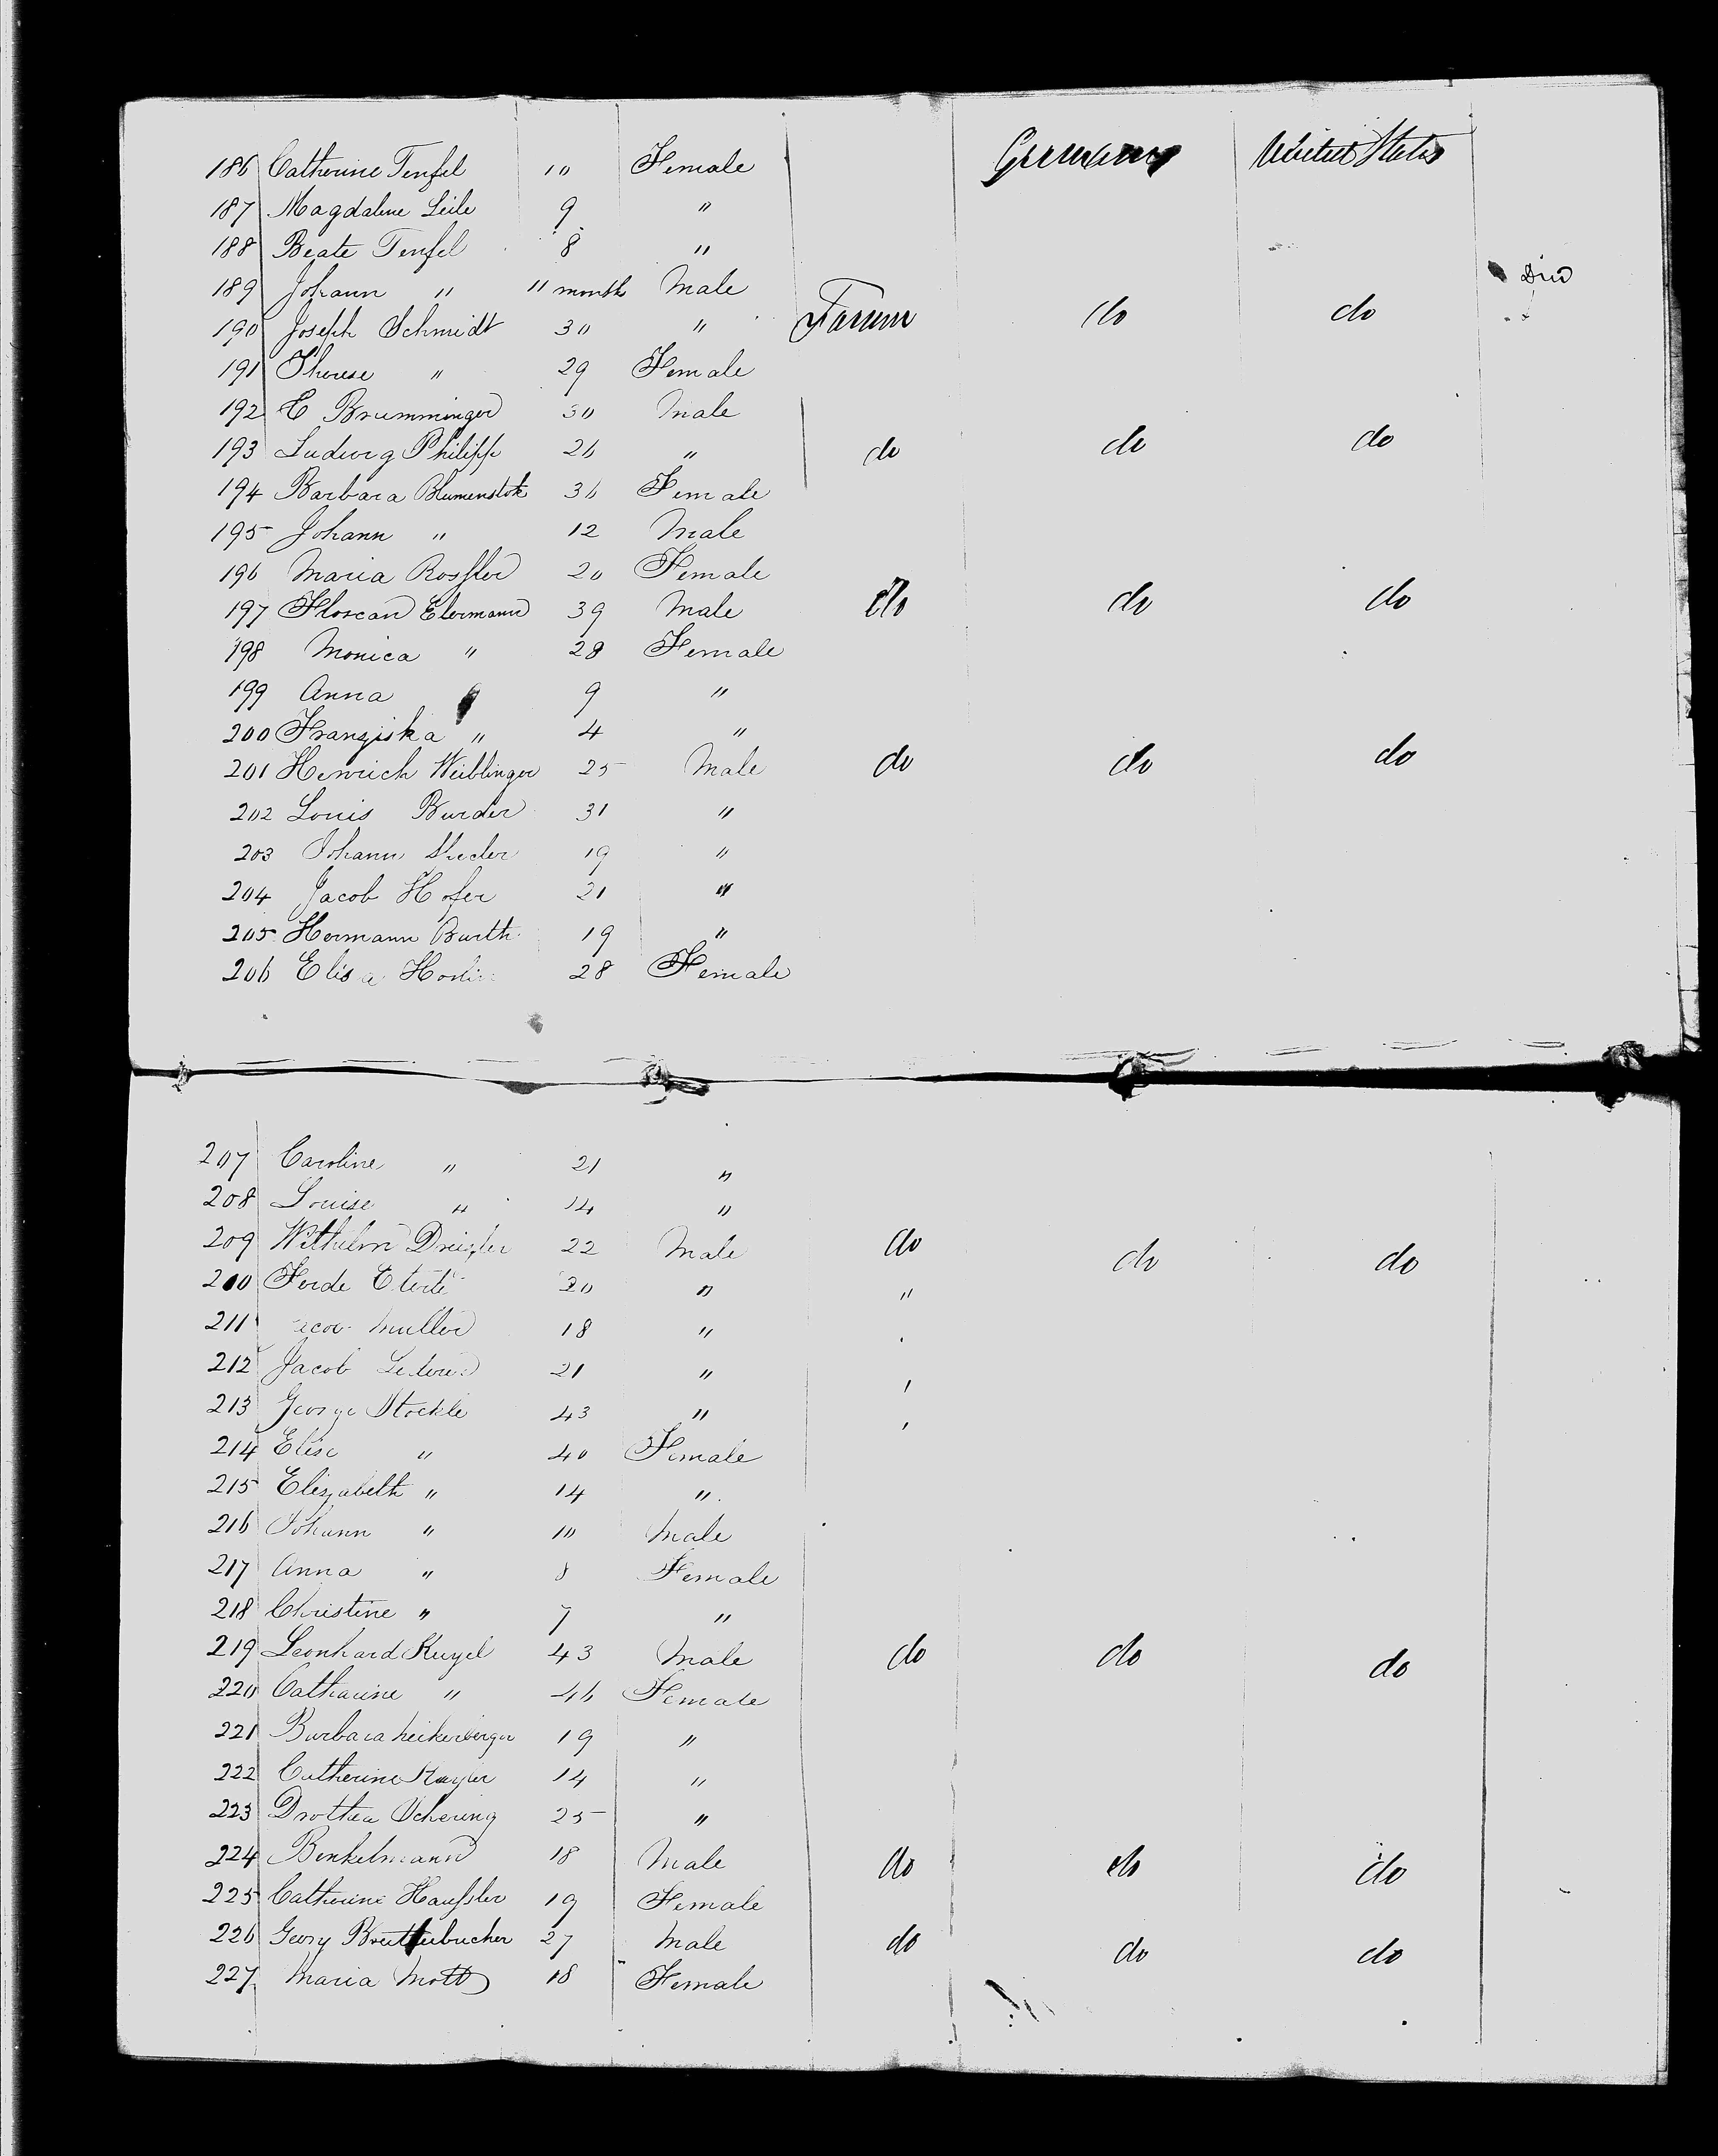 186 Catherine Tenfel 10 Female Germany United States
187 Magdalene Leile 9 "
188 Beate Tenfel 8 "
189 Johann " 11 month Male Died
190 Joseph Schmidt 30 " Farmer do do
191 Therese " 29 Female
192 C Brumminger 30 Male
193 Ludwig Philipp 26 " do do do
194 Barbara Blumenstok 36 Female
195 Johann " 12 Male
196 Maria Rossler 20 Female
197 Florean Ebermann 39 Male do do do
198 Monica " 28 Female
199 Anna " 9 "
200 Franziska " 4 "
201 Henrich Weiblinger 25 Male do do do
202 Louis Burder 31 "
203 Johann 19 "
204 Jacob Hofer 21 "
205 Hermann Burth 19 "
206 Elisa 28 Female
207 Caroline " 21 "
208 Louise " 14 "
209 Wilhelm 22 Male do do do
200 Ferde 20 " "
211 Muller 18 "
212 Jacob 21 "
213 George Stockle 43 "
214 Elise " 40 Female
215 Elizabeth " 14 "
216 Johann " 10 Male
217 Anna " 8 Female
218 Christine " 7 "
219 Leonhard Kugel 43 Male do do do
220 Catharine " 46 Female
221 Barbara 19 "
222 Catherine 14 "
223 Drothea Schering 25 "
224 Benkelmann 18 Male do do do
225 Catherine Haussler 19 Female
226 Georg 27 Male do do do
227 Maria Mott 18 Female